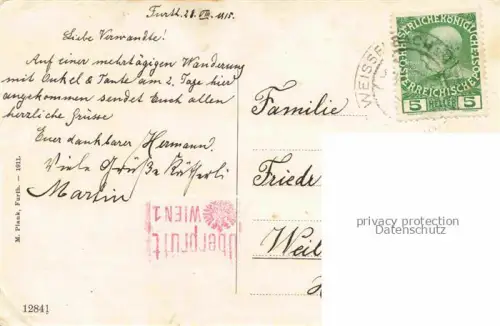 Furth. 21. VIII. 1915.
Liebe Verwandte!
Auf einer mehrtägigen Wanderung
mit Onkel & Tante am 2. Tage hier
angekommen sendet Euch allen
herzliche Grüsse
Euer dankbarer Hermann.
Viele Grüße
Martin
M. Plank, Furth. — 1911.
12841
WEISSEN
KAISERLICHE KÖNIGLICHE
ÖSTERREICHISCHE POST
5 HELLER 5
Familie
Friedr
Weil
Überprüft
WIEN 1
privacy protection
Datenschutz